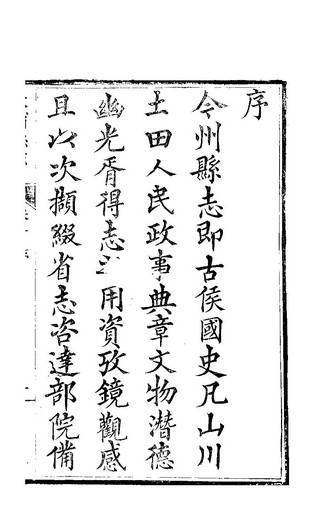 序
今州縣志即古侯國史凡山川
土田人民政事典章文物潛德
幽光胥得志之用資攷鏡觀感
且以次擷綴省志咨達部院備